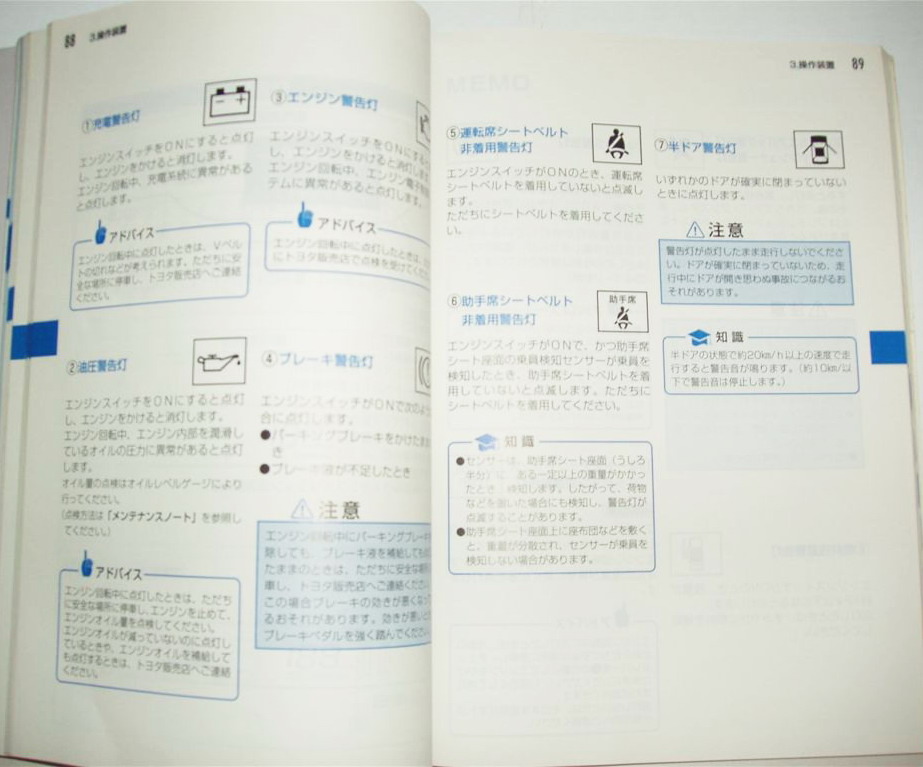 88 3.操作装置
①充電警告灯
エンジンスイッチをONにすると点灯
し、エンジンをかけると消灯します。
エンジン回転中、充電系統に異常がある
と点灯します。
アドバイス
エンジン回転中に点灯したときは、Vベル
トの切れなどが考えられます。ただちに安
全な場所に停車し、トヨタ販売店へご連絡
ください。
②油圧警告灯
エンジンスイッチをONにすると点灯
し、エンジンをかけると消灯します。
エンジン回転中、エンジン内部を潤滑し
ているオイルの圧力に異常があると点灯
します。
オイル量の点検はオイルレベルゲージにより
行ってください。
(点検方法は「メンテナンスノート」を参照し
てください。)
アドバイス
エンジン回転中に点灯したときは、ただち
に安全な場所に停車し、エンジンを止めて、
エンジンオイル量を点検してください。
エンジンオイルが減っていないのに点灯し
ているときや、エンジンオイルを補給して
も点灯するときは、トヨタ販売店へご連絡
ください。
③エンジン警告灯
エンジンスイッチをONにする
し、エンジンをかけると消灯しま
エンジン回転中、エンジン電子制
テムに異常があると点灯します。
アドバイス
エンジン回転中に点灯したときは、
にトヨタ販売店で点検を受けてくだ
④ブレーキ警告灯
エンジンスイッチがONで次のよう
合に点灯します。
●パーキングブレーキをかけたま
き
●ブレーキ液が不足したとき
注意
エンジン回転中にパーキングブレーキ
除しても、ブレーキ液を補給しても
たままのときは、ただちに安全な場所
車し、トヨタ販売店へご連絡くださ
この場合ブレーキの効きが悪くなっ
るおそれがあります。効きが悪いと
ブレーキペダルを強く踏んでくださ
3.操作装置 89
MEMO
⑤運転席シートベルト
非着用警告灯
エンジンスイッチがONのとき、運転席
シートベルトを着用していないと点滅し
ます。
ただちにシートベルトを着用してくださ
い。
⑥助手席シートベルト
非着用警告灯
助手席
エンジンスイッチがONで、かつ助手席
シート座面の乗員検知センサーが乗員を
検知したとき、助手席シートベルトを着
用していないと点滅します。ただちに
シートベルトを着用してください。
知識
●センサーは、助手席シート座面(うしろ
半分)に、ある一定以上の重量がかかっ
たとき、検知します。したがって、荷物
などを置いた場合にも検知し、警告灯が
点滅することがあります。
●助手席シート座面上に座布団などを敷く
と、重量が分散され、センサーが乗員を
検知しない場合があります。
⑦半ドア警告灯
いずれかのドアが確実に閉まっていない
ときに点灯します。
注意
警告灯が点灯したまま走行しないでくださ
い。ドアが確実に閉まっていないため、走
行中にドアが開き思わぬ事故につながるお
それがあります。
知識
半ドアの状態で約20km/h以上の速度で走
行すると警告音が鳴ります。(約10km/h以
下で警告音は停止します。)